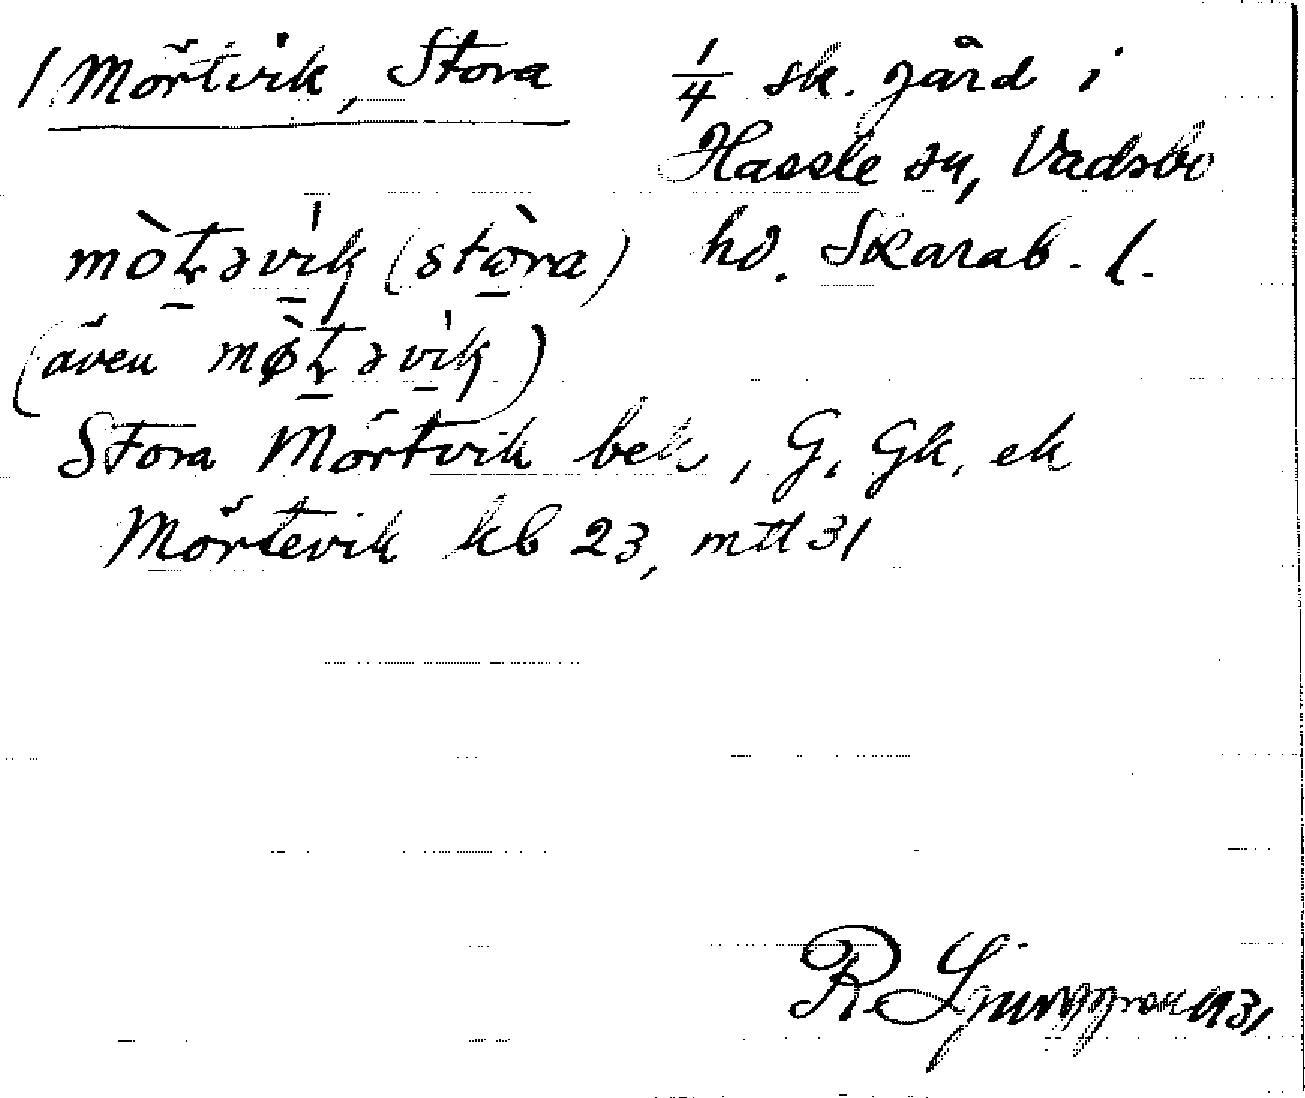 1 Mörtvik, Stora
1/4 sk. gård i
Hassle sn, Vadsbo
hd. Skarab. l.
(stòra)
(även
Stora Mörtvik bek, G, Gk, ek
Mörtevik kb 23, mtl 31
R Ljunggren 1931